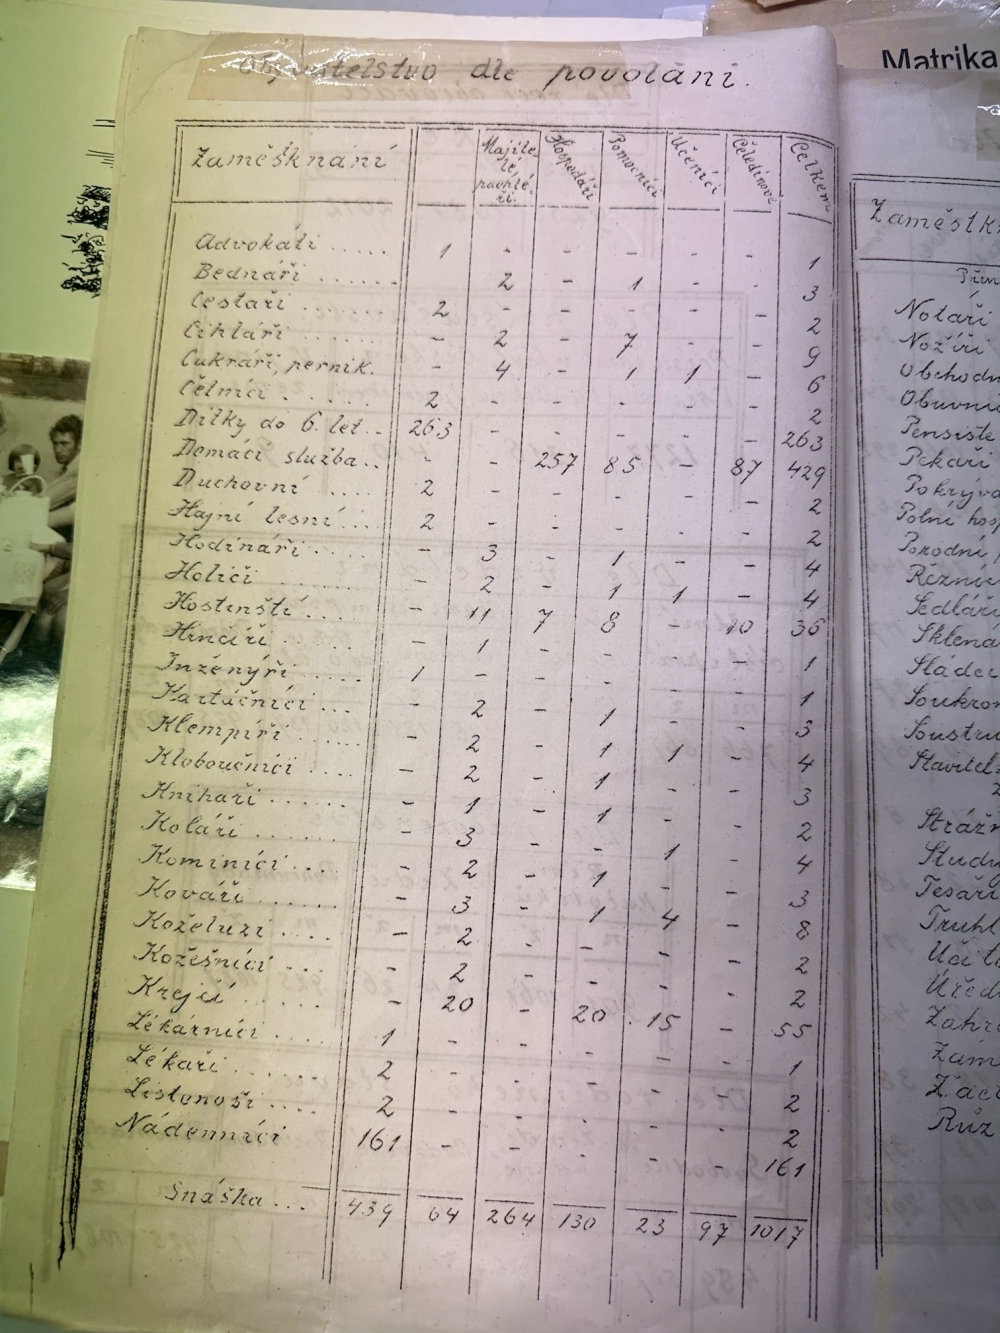 Obyvatelstvo dle povolání.
Matrika
Zaměstknání Majite- lé, pachté- ři. Hospodáři Pomocníci Učeníci Čeledínové Celkem
Advokáti ..... 1 - - - - - 1
Bednáři ...... - 2 - 1 - - 3
Cestaři ...... 2 - - - - - 2
Cihláři ...... - 2 - 7 - - 9
Cukráři, perník. - 4 - 1 1 - 6
Čelníci ...... 2 - - - - - 2
Dítky do 6. let .. 263 - - - - - 263
Domácí služba .. - - 257 85 - 87 429
Duchovní .... 2 - - - - - 2
Hajní lesní ... 2 - - - - - 2
Hodináři ..... - 3 - 1 - - 4
Holiči ...... - 2 - 1 1 - 4
Hostinští .... - 11 7 8 - 10 36
Hrnčíři ..... - 1 - - - - 1
Inženýři ..... 1 - - - - - 1
Kartáčníci ... - 2 - 1 - - 3
Klempíři .... - 2 - 1 1 - 4
Kloboučníci .... - 2 - 1 - - 3
Knihaři ...... - 1 - 1 - - 2
Koláři ...... - 3 - - 1 - 4
Kominíci .... - 2 - 1 - - 3
Kováři ...... - 3 - 1 4 - 8
Koželuzi .... - 2 - - - - 2
Kožešníci ... - 2 - - - - 2
Krejčí ...... - 20 - 20 15 - 55
Lékárníci .... 1 - - - - - 1
Lékaři ...... 2 - - - - - 2
Listonoši .... 2 - - - - - 2
Nádenníci 161 - - - - - 161
Snáška ... 439 64 264 130 23 97 1017
Zaměstk
Notáři
Nožíři
Obchodn
Obuvní
Pensiste
Pekaři
Pokrýva
Polní hosp
Porodní
Řezníc
Sedláři
Sklena
Sladci
Soukrom
Soustru
Stavitel
Strážn
Studu
Tesaři
Truhl
Učite
Úřed
Zahr
Zám
Žáci
Růz